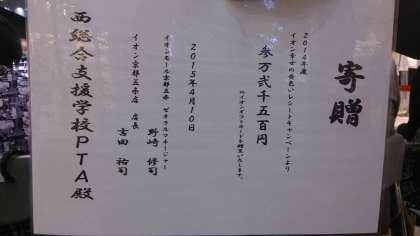 寄贈
2014年度
イオン幸せの黄色いレシートキャンペーンより
参万弐千五百円
のイオンギフトカードを贈呈いたします。
2015年4月10日
イオンモール京都五条 ゼネラルマネージャー
野崎 修司
イオン京都五条店 店長
吉田 祐司
西総合支援学校PTA殿